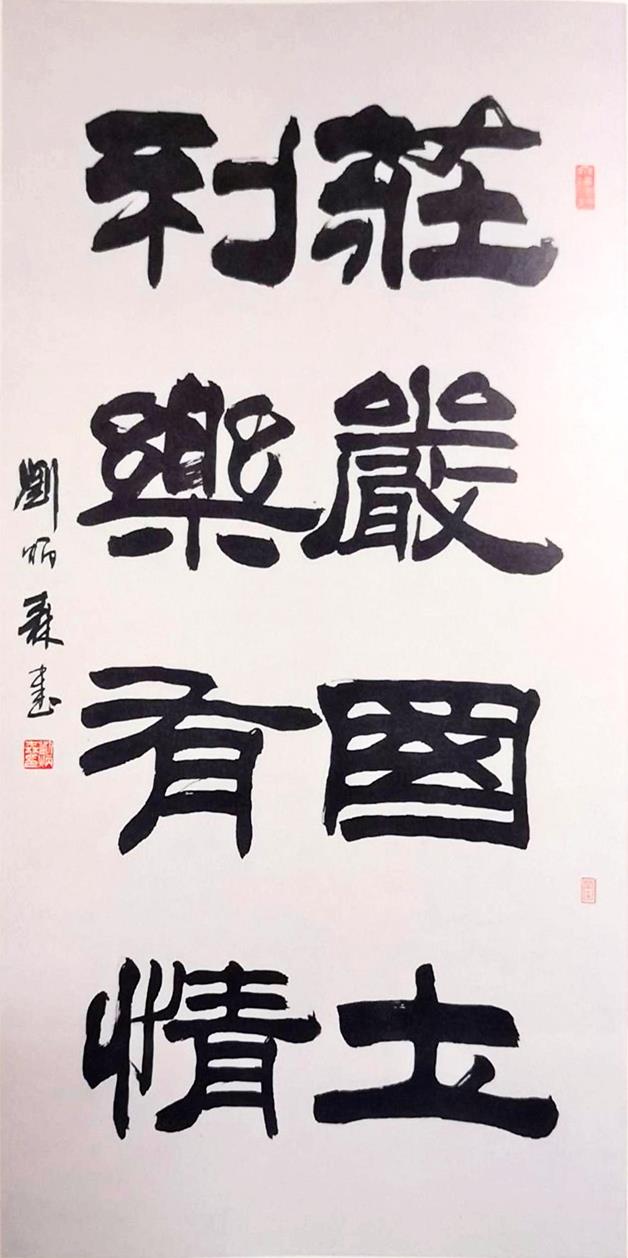 莊嚴國土
利樂有情
劉炳森書